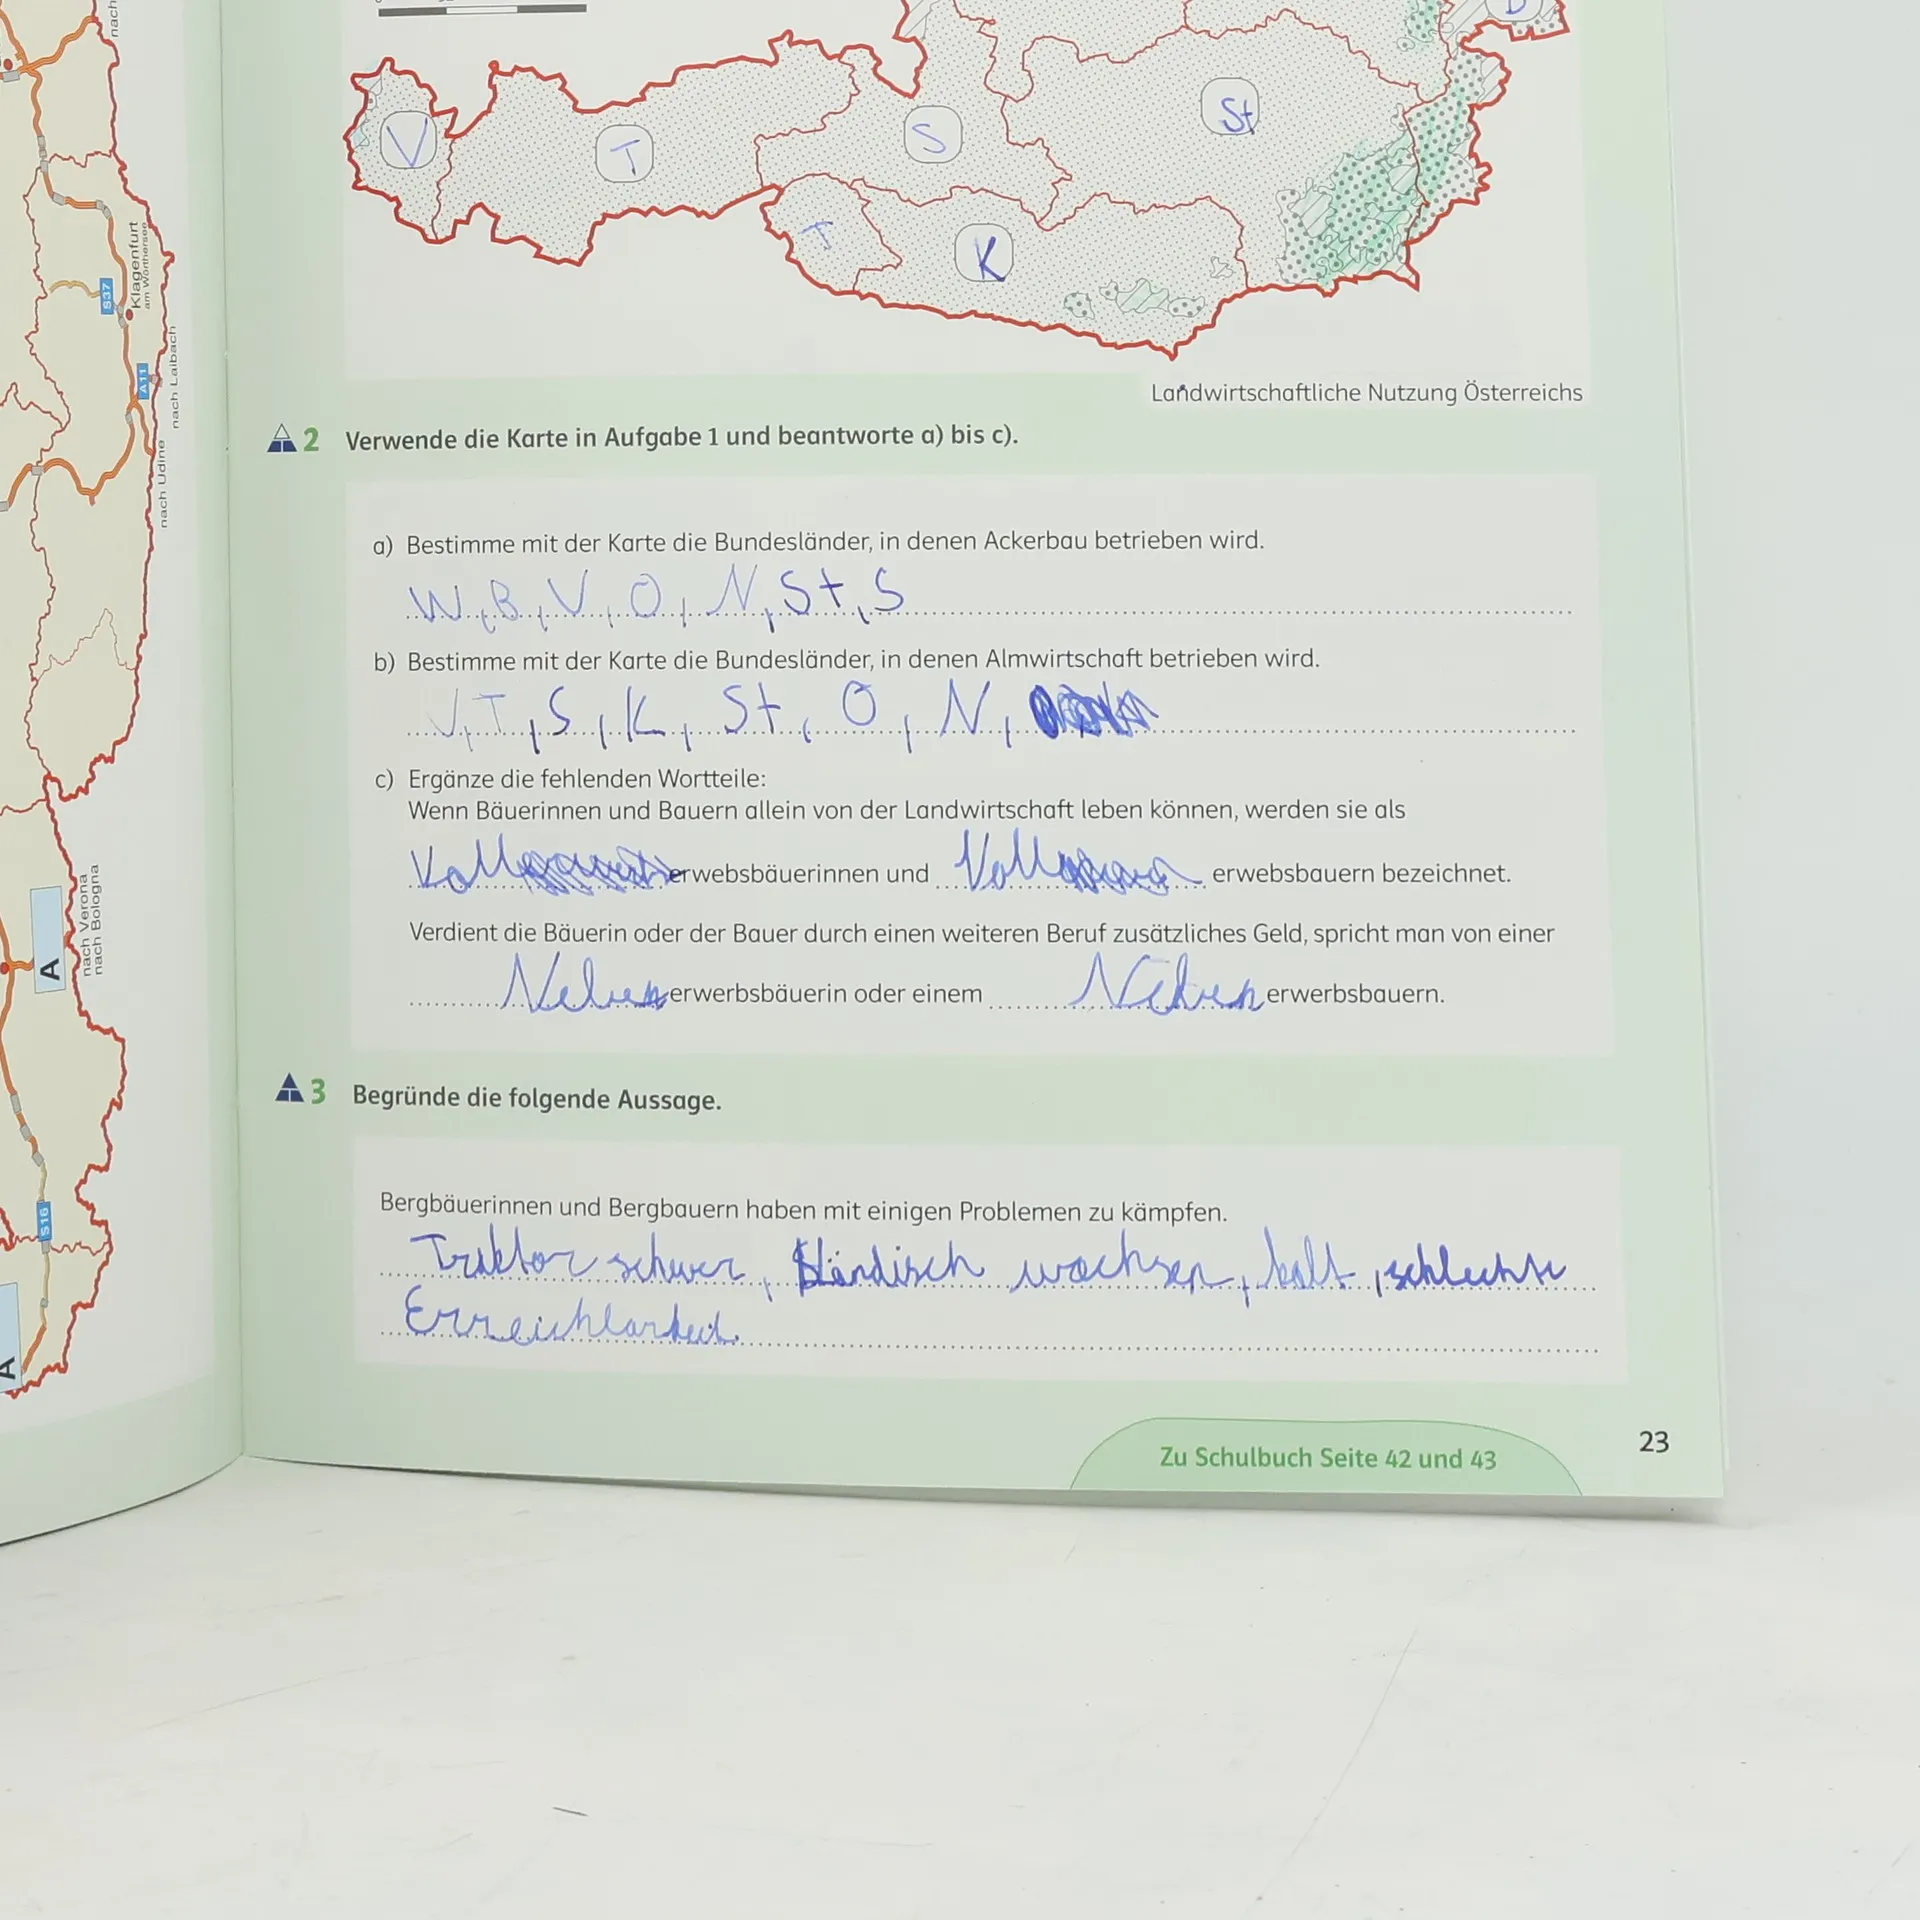 nach
Klagenfurt
am Wörthersee
S37
A11
nach Laibach
nach Udine
A
nach Verona
nach Bologna
S16
A
V
T
S
St
T
K
Landwirtschaftliche Nutzung Österreichs
2 Verwende die Karte in Aufgabe 1 und beantworte a) bis c).
a) Bestimme mit der Karte die Bundesländer, in denen Ackerbau betrieben wird.
W, B, V, O, N, St, S
b) Bestimme mit der Karte die Bundesländer, in denen Almwirtschaft betrieben wird.
V, T, S, K, St, O, N,
c) Ergänze die fehlenden Wortteile:
Wenn Bäuerinnen und Bauern allein von der Landwirtschaft leben können, werden sie als
Voll erwebsbäuerinnen und Voll erwebsbauern bezeichnet.
Verdient die Bäuerin oder der Bauer durch einen weiteren Beruf zusätzliches Geld, spricht man von einer
Neben erwerbsbäuerin oder einem Neben erwerbsbauern.
3 Begründe die folgende Aussage.
Bergbäuerinnen und Bergbauern haben mit einigen Problemen zu kämpfen.
Traktor schwer, wachsen, kalt, schlechte
Erreichbarkeit.
Zu Schulbuch Seite 42 und 43
23